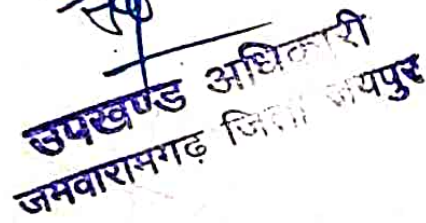 उपखण्ड अधिकारी
जमवारामगढ़ जिला जयपुर